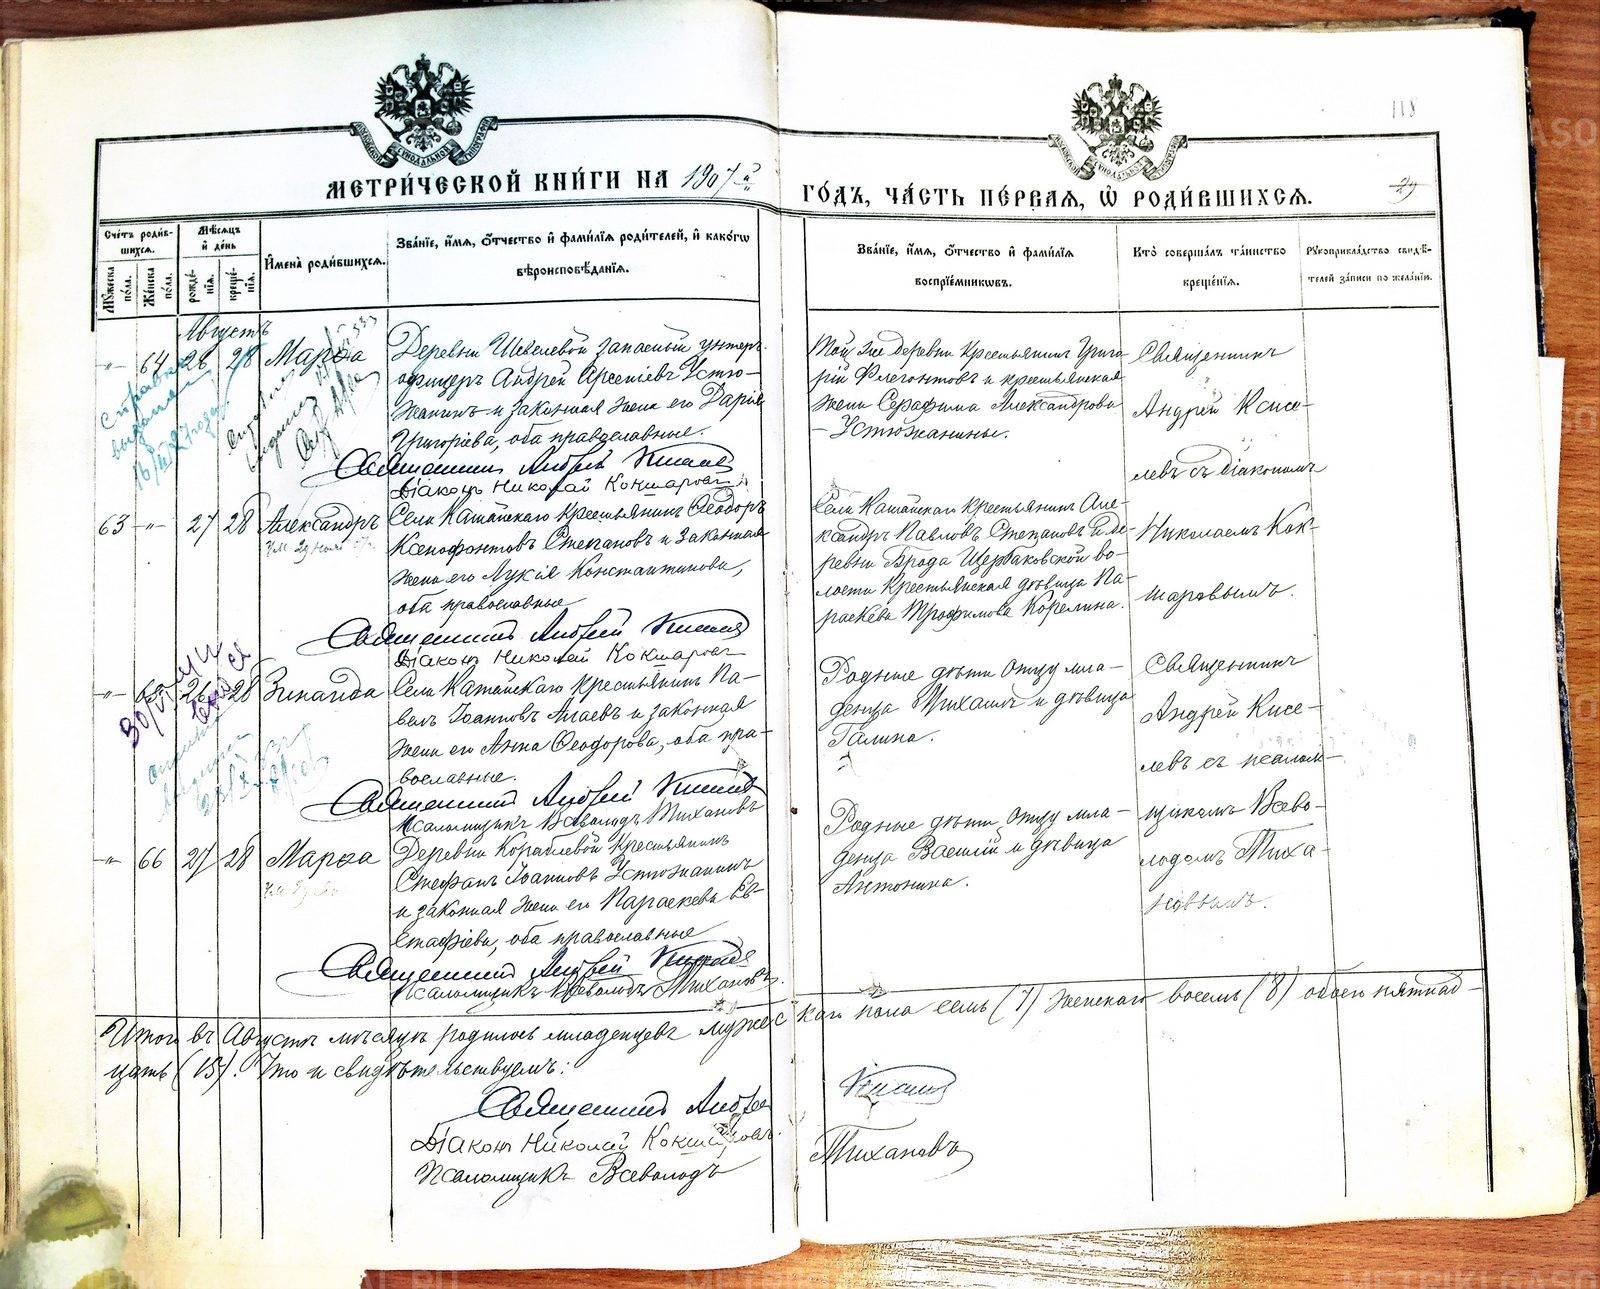 118
29
МОСКОВСКОЙ СѴНОДАЛЬНОЙ ТИПОГРАФІИ
МОСКОВСКОЙ СѴНОДАЛЬНОЙ ТИПОГРАФІИ
МЕТРИ́ЧЕСКОЙ КНИ́ГИ НА 1907 й
ГО́ДЪ, ЧА́СТЬ ПЕ́РВАЯ, Ѡ РОДИ́ВШИХСЯ.
Сче́тъ роди́в-
шихся.
Мꙋ́жеска по́ла.
Же́неска по́ла.
Мѣ́сяцъ
и҆ де́нь
рожде́-
нїя.
креще́-
нїя.
И҆мена̀ роди́вшихся.
Зва́нїе, и҆́мя, ѻ҆́тчество и҆ фами́лїя роди́телей, и҆ како́гѡ
вѣроисповѣ́данїя.
Зва́нїе, и҆́мя, ѻ҆́тчество и҆ фами́лїя
воспрїе́мникѡвъ.
Кто̀ соверша́лъ та́инство
креще́нїя.
Рꙋкоприкла́дство свидѣ́-
телей за́писи по жела́нїю.
Августъ
-"- 64 26 28 Марѳа
Деревни Шевелевой запасный унтеръ-
офицеръ Андрей Арсеніевъ Устю-
жанинъ и законная жена его Дарія
Григоріева, оба православные.
Священникъ Андрей Киселевъ
Діаконъ Николай Кокшаровъ
Той же деревни крестьянинъ Григо-
рій Флегонтовъ и крестьянская
жена Серафима Александрова
Устюжанины.
Священникъ
Андрей Кисе-
левъ съ діакономъ
Николаемъ Кок-
шаровымъ.
Справка
выдана
63 -"- 27 28 Александръ
Села Катайскаго крестьянинъ Ѳеодоръ
Ксенофонтовъ Степановъ и законная
жена его Лукія Константинова,
оба православные
Священникъ Андрей Киселевъ
Діаконъ Николай Кокшаровъ
Села Катайскаго крестьянинъ Але-
ксандръ Павловъ Степановъ и де-
ревни Брода Щербаковской во-
лости крестьянская дѣвица Па-
раскева Трофимова Корелина.
-"- 26 28 Зинаида
Села Катайскаго крестьянинъ Па-
велъ Іоанновъ Агаевъ и законная
жена его Анна Ѳеодорова, оба пра-
вославные.
Священникъ Андрей Киселевъ
Псаломщикъ Всеволодъ Тихановъ
Родные дѣти отцу мла-
денца Михаилъ и дѣвица
Галина.
Священникъ
Андрей Кисе-
левъ съ псалом-
щикомъ Всево-
лодомъ Тиха-
новымъ.
-"- 66 27 28 Марѳа
Деревни Кораблевой крестьянинъ
Стефанъ Іоанновъ Устюжанинъ
и законная жена его Параскева Ев-
стафіева, оба православные
Священникъ Андрей Киселевъ
Псаломщикъ Всеволодъ Тихановъ.
Родные дѣти отцу мла-
денца Василій и дѣвица
Антонина.
Итого въ Августѣ мѣсяцѣ родилось младенцевъ мужескаго пола семь (7) женскаго восемь (8) обоего пятнад-
цать (15). Что и свидѣтельствуемъ:
Священникъ Андрей Киселевъ
Діаконъ Николай Кокшаровъ.
Псаломщикъ Всеволодъ Тихановъ